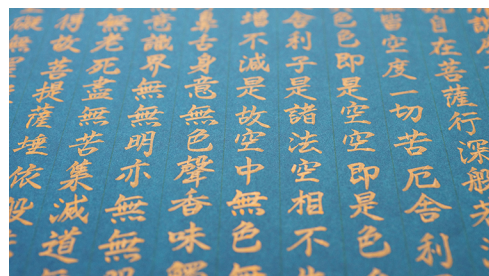 觀自在菩薩行深般若
皆空度一切苦厄舍利
色色即是空空即是色
舍利子是諸法空相不
增不減是故空中無色無
鼻舌身意無色聲香味觸
無意識界無無明亦無無
無老死盡無苦集滅道
得故菩提薩埵依般
礙無罣